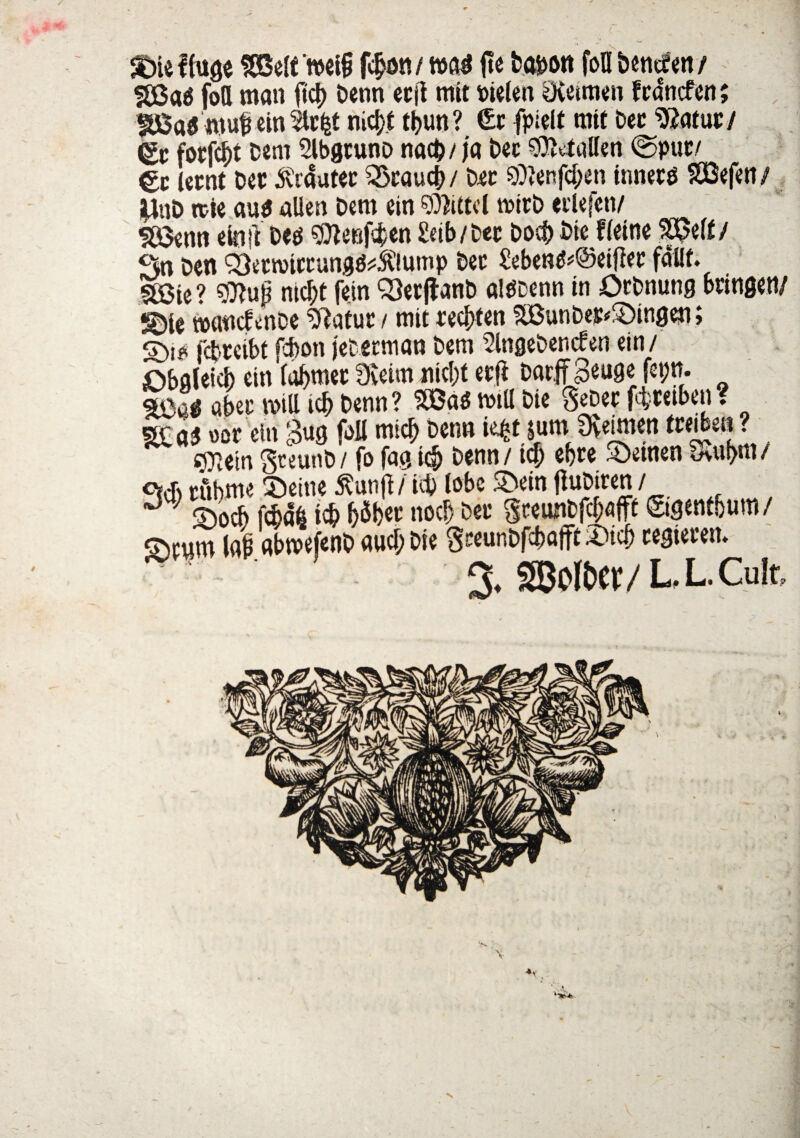 Die kluge Welt weiß schon / was sie davon soll dencken /
Was soll man sich denn erst mit vielen Reimen kräncken;
Was muß ein Artzt nicht thun? Er spielt mit der Natur /
Er forscht dem Abgrund nach / ja der Metallen Spur /
Er lernt der Kräuter Brauch / der Menschen inners Wesen /
Und wie aus allen dem ein Mittel wird erlesen /
Wenn einst des Menschen Leib / der doch die kleine Welt /
In den Verwirrungs-Klump der Lebens-Geister fällt.
Wie? Muß nicht sein Verstand alsdenn in Ordnung bringen /
Die wanckende Natur / mit rechten Wunder-Dingen;
Dis schreibt schon jederman dem Angedencken ein /
Obgleich ein lahmer Reim nicht erst darff Zeuge seyn.
Was aber will ich denn? Was will die Feder schreiben?
Was vor ein Zug soll mich denn ietzt zum Reimen treiben?
Mein Freund / so sag ich denn / ich ehre Deinen Ruhm /
Ich rühme Deine Kunst / ich lobe Dein studiren /
Doch schätz ich höher noch der Freundschafft Eigenthum /
Drum laß abwesend auch die Freundschafft Dich regieren.
J. Wolder / L. L. Cult.